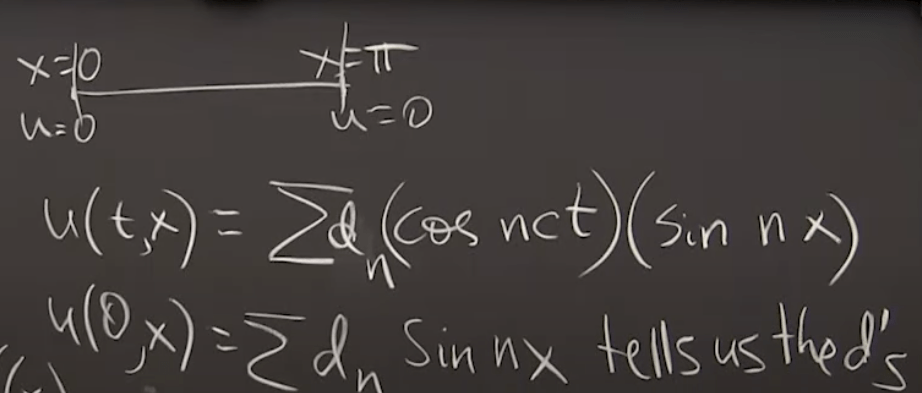 x=0 x=π
u=0 u=0
u(t,x) = Σdₙ(cos nct)(sin nx)
u(0,x) = Σ dₙ sin nx tells us the d's